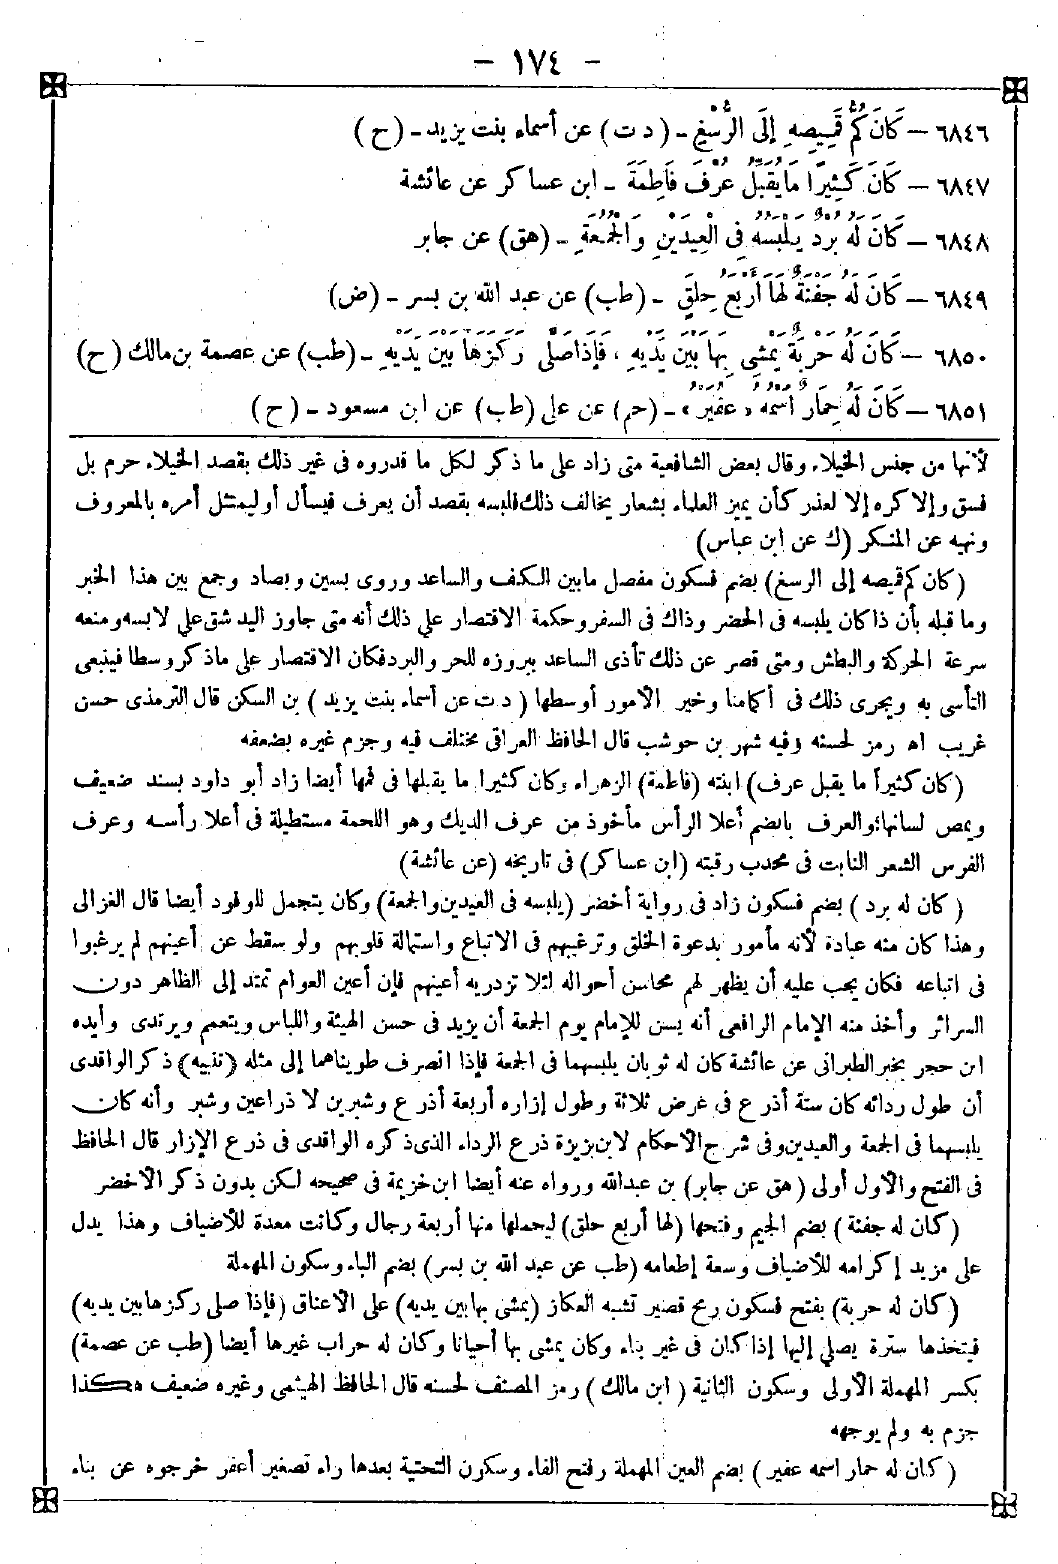 - ١٧٤ -
٦٨٤٦ - كَانَ كُمُّ قَمِيصِهِ إِلَى الرُّسْغِ - (د ت) عن أسماء بنت يزيد - (ح)
٦٨٤٧ - كَانَ كَثِيرًا مَا يُقَبِّلُ عُرْفَ فَاطِمَةَ - ابن عساكر عن عائشة
٦٨٤٨ - كَانَ لَهُ بُرْدٌ يَلْبَسُهُ فِي الْعِيدَيْنِ وَالْجُمُعَةِ - (هق) عن جابر
٦٨٤٩ - كَانَ لَهُ جَفْنَةٌ لَهَا أَرْبَعُ حِلَقٍ - (طب) عن عبد الله بن بسر - (ض)
٦٨٥٠ - كَانَ لَهُ حَرْبَةٌ يَمْشِي بِهَا بَيْنَ يَدَيْهِ، فَإِذَا صَلَّى رَكَزَهَا بَيْنَ يَدَيْهِ - (طب) عن عصمة بن مالك (ح)
٦٨٥١ - كَانَ لَهُ حِمَارٌ اسْمُهُ «عُفَيْرٌ» - (حم) عن على (طب) عن ابن مسعود - (ح)
لأنها من جنس الخيلاء وقال بعض الشافعية متى زاد على ما ذكر لكل ما قدروه فى غير ذلك بقصد الخيلاء حرم بل
فسق وإلا كره إلا لعذر كأن يميز العلماء بشعار يخالف ذلك فلبسه بقصد أن يعرف فيسأل أو ليمتثل أمره بالمعروف
ونهيه عن المنكر (ك عن ابن عباس)
(كان كم قميصه إلى الرسغ) بضم فسكون مفصل ما بين الكف والساعد وروى بسين وبصاد وجمع بين هذا الخبر
وما قبله بأن ذا كان يلبسه فى الحضر وذاك فى السفر وحكمة الاقتصار على ذلك أنه متى جاوز اليد شق على لابسه ومنعه
سرعة الحركة والبطش ومتى قصر عن ذلك تأذى الساعد ببروزه للحر والبرد فكان الاقتصار على ما ذكر وسطا فينبغى
التأسى به ويجرى ذلك فى أكمامنا وخير الأمور أوسطها (د ت عن أسماء بنت يزيد) بن السكن قال الترمذى حسن
غريب اه رمز لحسنه وفيه شهر بن حوشب قال الحافظ العراقى مختلف فيه وجزم غيره بضعفه
(كان كثيراً ما يقبل عرف) ابنته (فاطمة) الزهراء وكان كثيرا ما يقبلها فى فمها أيضا زاد أبو داود بسند ضعيف
ويمص لسانها؛ والعرف بالضم أعلا الرأس مأخوذ من عرف الديك وهو اللحمة مستطيلة فى أعلا رأسه وعرف
الفرس الشعر النابت فى محدب رقبته (ابن عساكر) فى تاريخه (عن عائشة)
(كان له برد) بضم فسكون زاد فى رواية أخضر (يلبسه فى العيدين والجمعة) وكان يتجمل للوفود أيضا قال الغزالى
وهذا كان منه عبادة لأنه مأمور بدعوة الخلق وترغيبهم فى الاتباع واستمالة قلوبهم ولو سقط عن أعينهم لم يرغبوا
فى اتباعه فكان يجب عليه أن يظهر لهم محاسن أحواله لئلا تزدريه أعينهم فإن أعين العوام تمتد إلى الظاهر دون
السرائر وأخذ منه الإمام الرافعى أنه يسن للإمام يوم الجمعة أن يزيد فى حسن الهيئة واللباس ويتعمم ويرتدى وأيده
ابن حجر بخبر الطبرانى عن عائشة كان له ثوبان يلبسهما فى الجمعة فإذا انصرف طويناهما إلى مثله (تنبيه) ذكر الواقدى
أن طول ردائه كان ستة أذرع فى عرض ثلاثة وطول إزاره أربعة أذرع وشبرين لا ذراعين وشبر وأنه كان
يلبسهما فى الجمعة والعيدين وفى شرح الأحكام لابن بزيزة ذرع الرداء الذى ذكره الواقدى فى ذرع الإزار قال الحافظ
فى الفتح والأول أولى (هق عن جابر) بن عبدالله ورواه عنه أيضا ابن خزيمة فى صحيحه لكن بدون ذكر الأخضر
(كان له جفنة) بضم الجيم وفتحها (لها أربع حلق) ليحملها منها أربعة رجال وكانت معدة للأضياف وهذا يدل
على مزيد إكرامه للأضياف وسعة إطعامه (طب عن عبد الله بن بسر) بضم الباء وسكون المهملة
(كان له حربة) بفتح فسكون رمح قصير تشبه العكاز (يمشى بها بين يديه) على الأعناق (فإذا صلى ركزها بين يديه)
فيتخذها سترة يصلى إليها إذا كان فى غير بناء وكان يمشى بها أحيانا وكان له حراب غيرها أيضا (طب عن عصمة)
بكسر المهملة الأولى وسكون الثانية (ابن مالك) رمز المصنف لحسنه قال الحافظ الهيثمى وغيره ضعيف هكذا
جزم به ولم يوجهه
(كان له حمار اسمه عفير) بضم العين المهملة وفتح الفاء وسكون التحتية بعدها راء تصغير أعفر خرجوه عن بناء